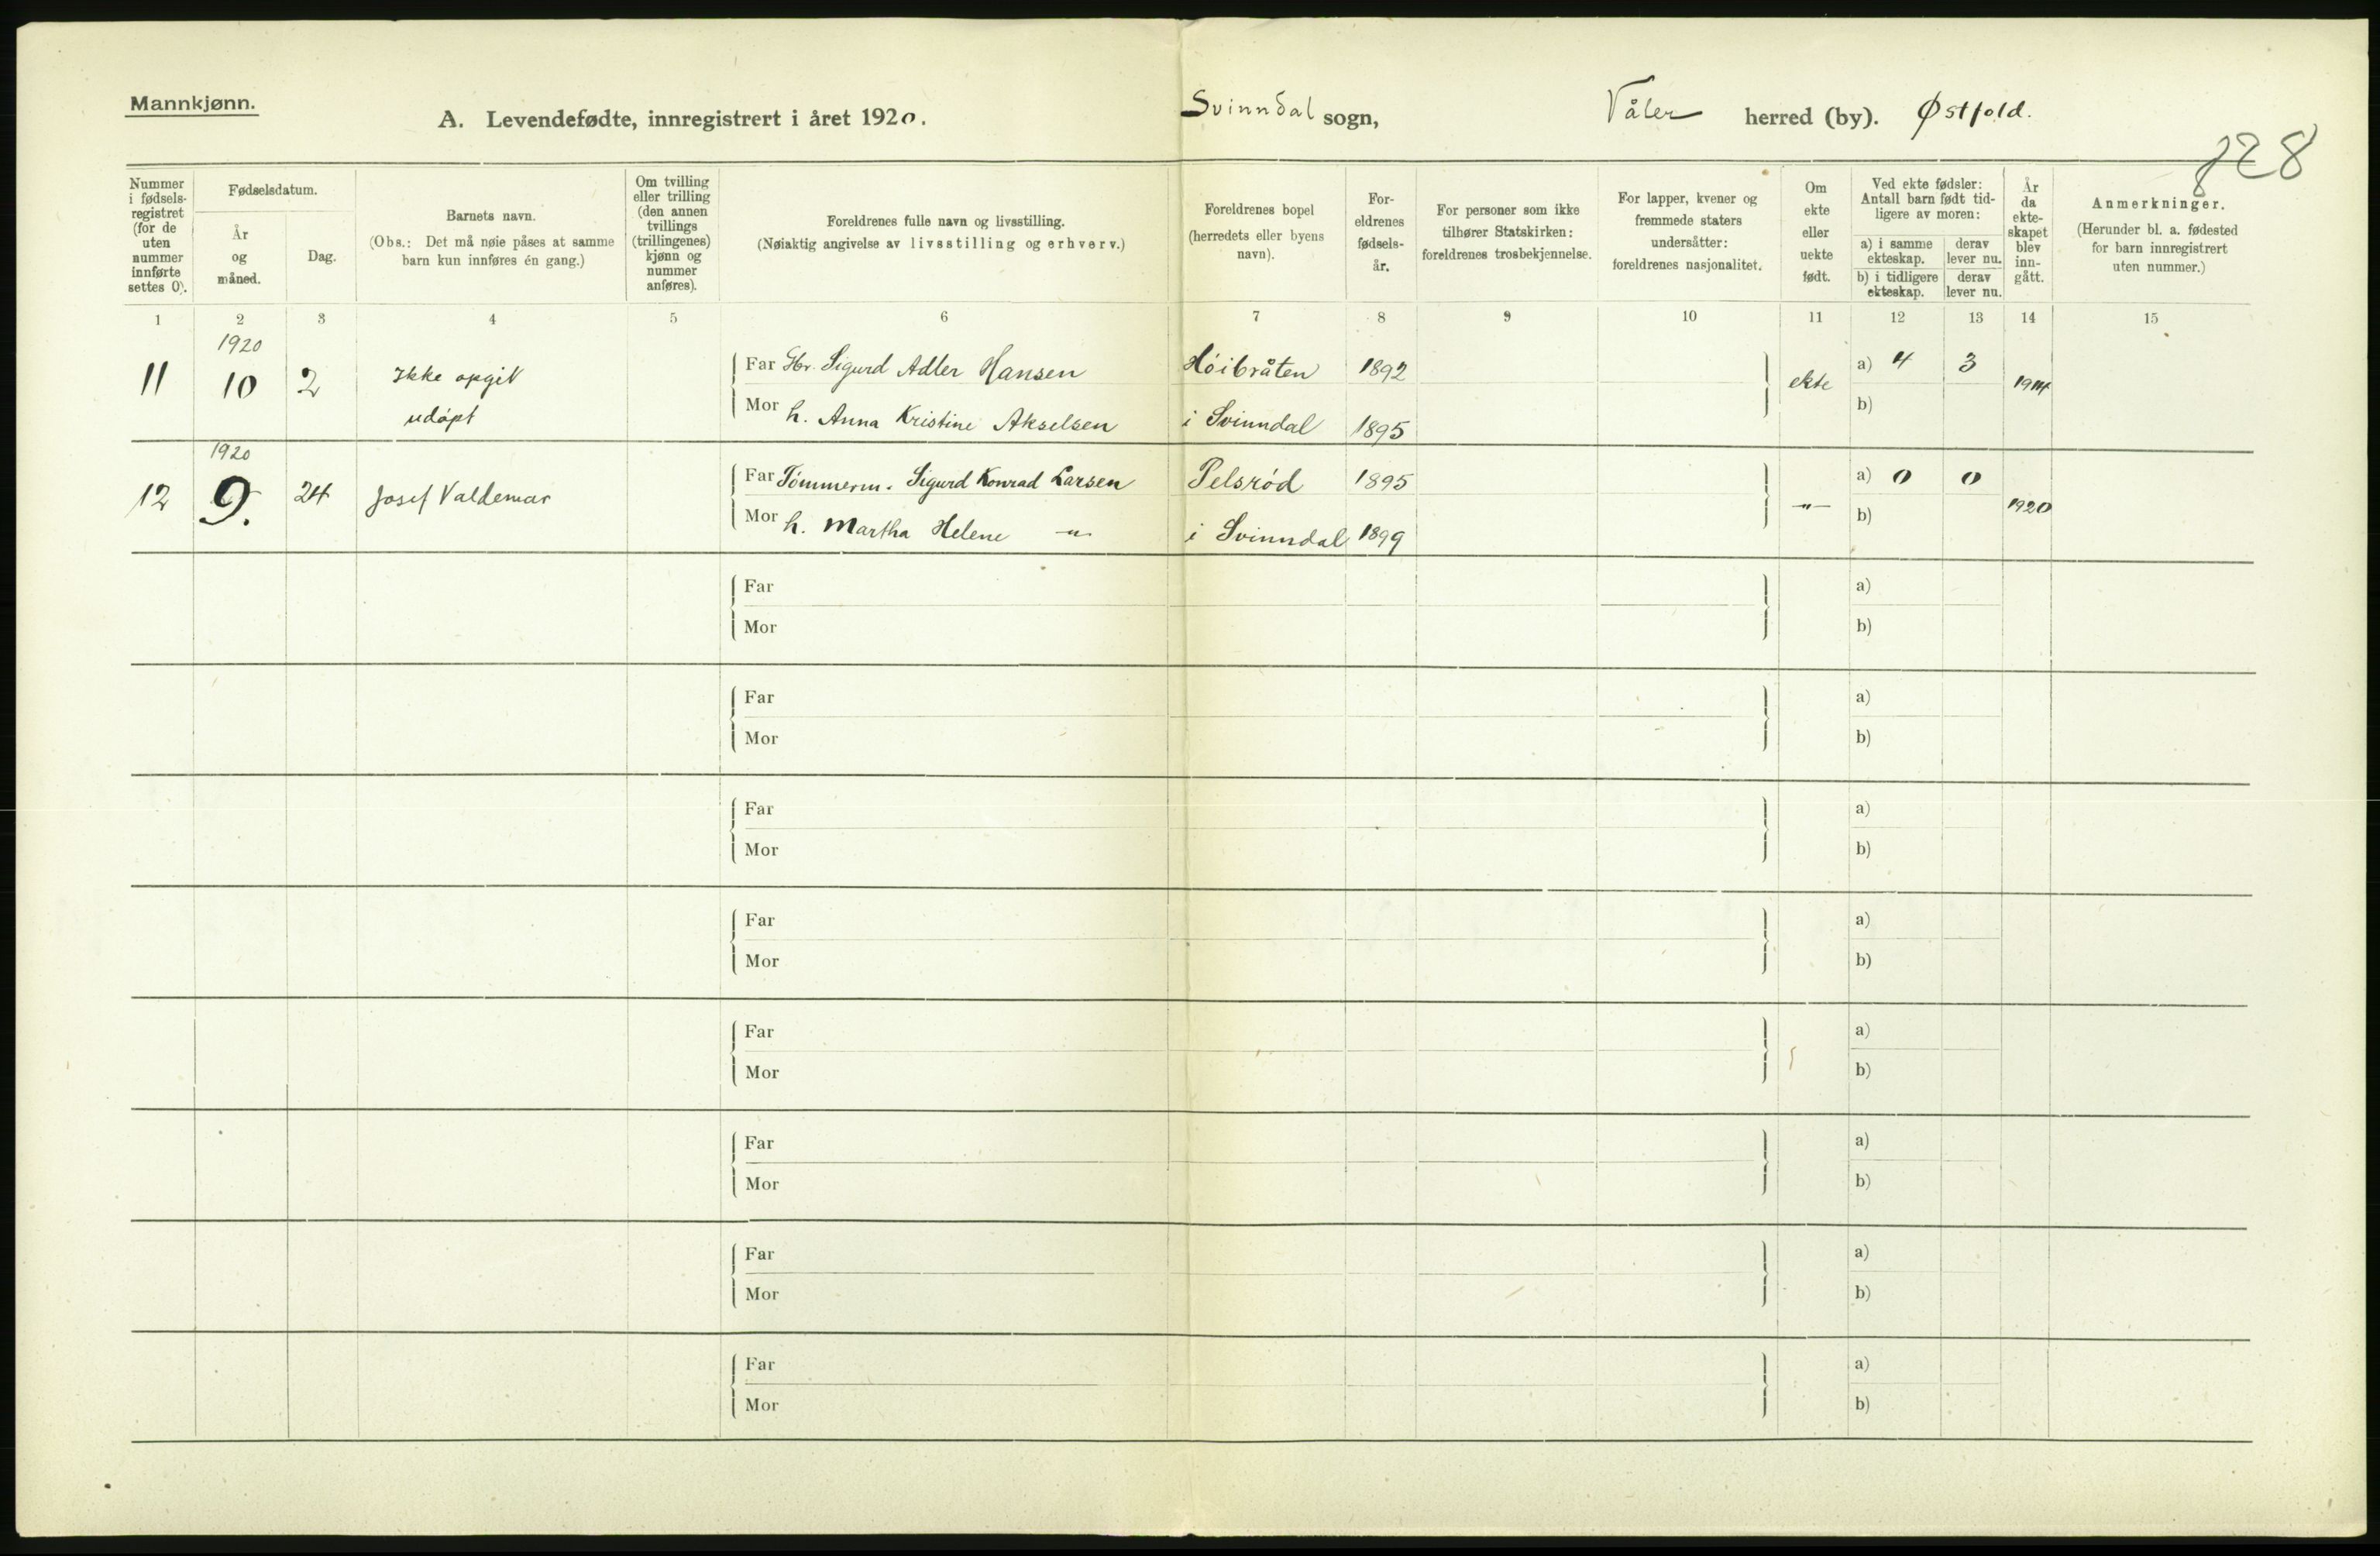 Mannkjønn.
A. Levendefødte, innregistrert i året 1920. Svinndal sogn, Våler herred (by). Østfold.
828
Nummer i fødsels- registret (for de uten nummer innførte settes 0).
Fødselsdatum.
År og måned.
Dag.
Barnets navn.
(Obs.: Det må nøie påses at samme barn kun innføres én gang.)
Om tvilling eller trilling (den annen tvillings (trillingenes) kjønn og nummer anføres).
Foreldrenes fulle navn og livsstilling.
(Nøiaktig angivelse av livsstilling og erhverv.)
Foreldrenes bopel (herredets eller byens navn).
For- eldrenes fødsels- år.
For personer som ikke tilhører Statskirken: foreldrenes trosbekjennelse.
For lapper, kvener og fremmede staters undersåtter: foreldrenes nasjonalitet.
Om ekte eller uekte født.
Ved ekte fødsler: Antall barn født tid- ligere av moren:
a) i samme ekteskap. derav lever nu.
b) i tidligere ekteskap. derav lever nu.
År da ekte- skapet blev inn- gått.
Anmerkninger.
(Herunder bl. a. fødested for barn innregistrert uten nummer.)
1 2 3 4 5 6 7 8 9 10 11 12 13 14 15
1920
11 10 2 Ikke opgit Far Gbr. Sigurd Adler Hansen Höibråten 1892 ekte a) 4 3 1914
udöpt Mor h. Anna Kristine Akselsen i Svinndal 1895 b)
1920
12 9. 24 Josef Valdemar Far Tömmerm. Sigurd Konrad Larsen Pelsröd 1895 –"– a) 0 0 1920
Mor h. Martha Helene –"– i Svinndal 1899 b)
Far a)
Mor b)
Far a)
Mor b)
Far a)
Mor b)
Far a)
Mor b)
Far a)
Mor b)
Far a)
Mor b)
Far a)
Mor b)
Far a)
Mor b)